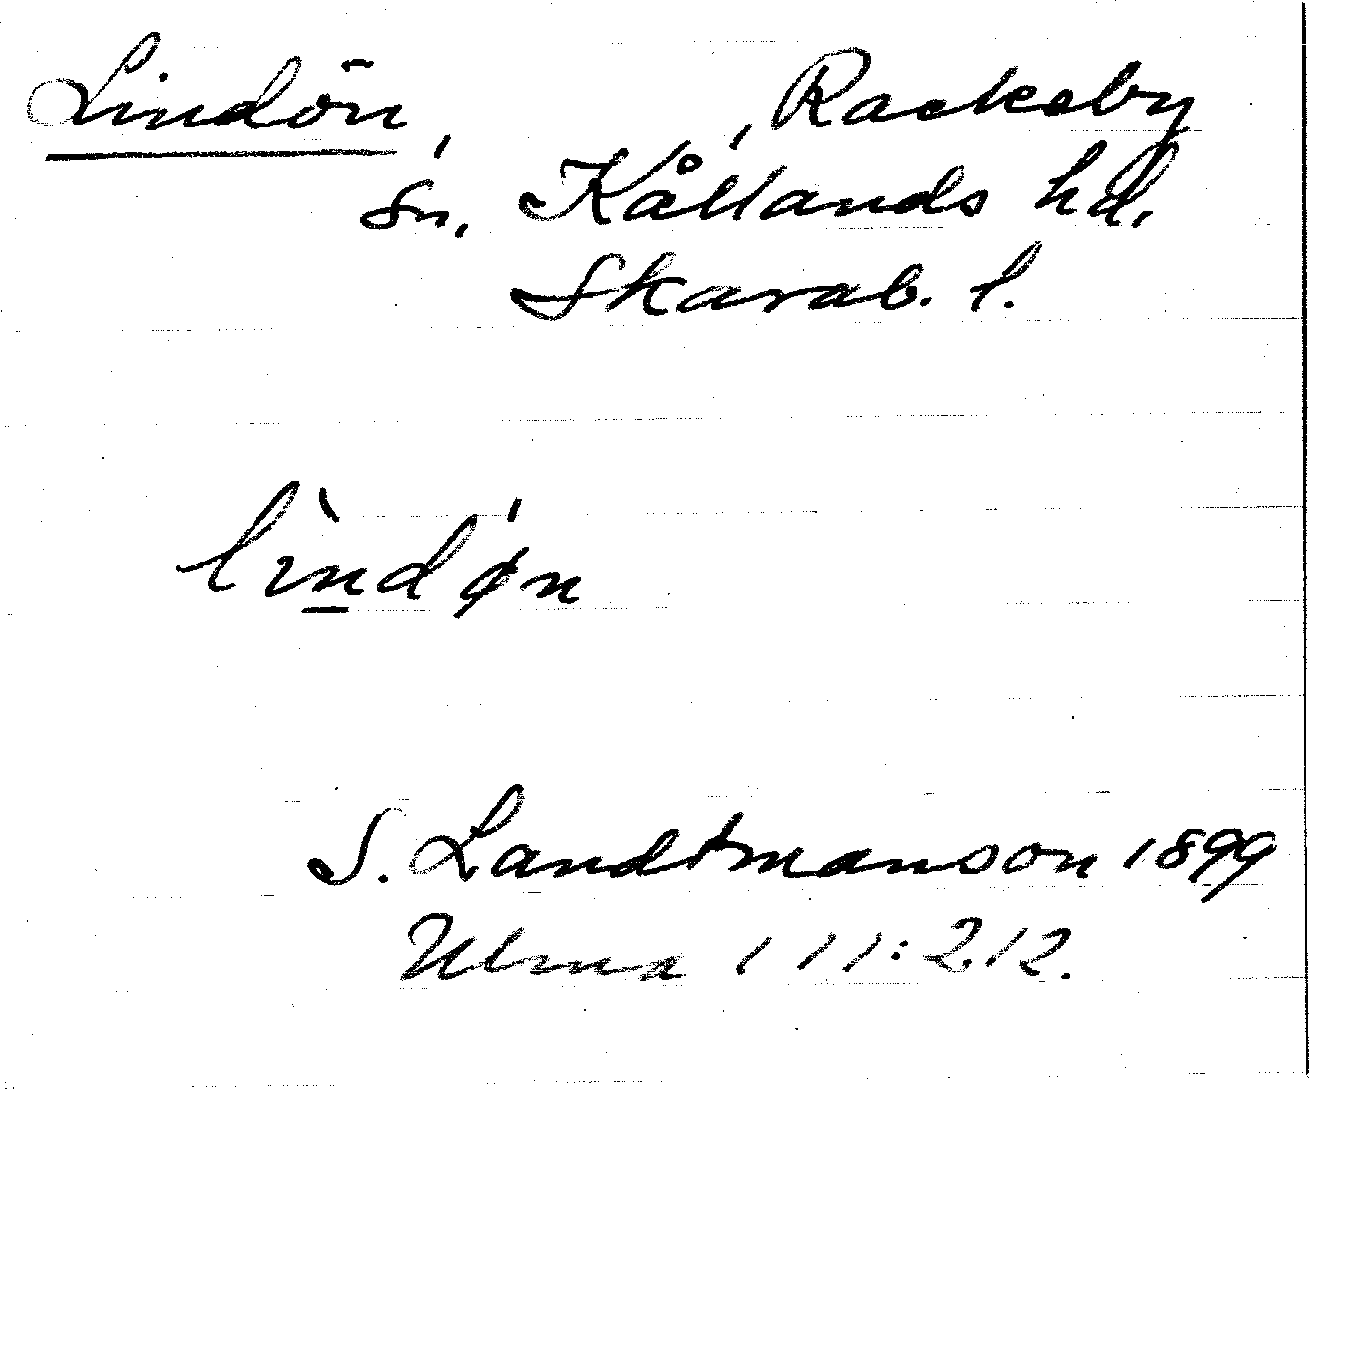 Lindön, , Rackeby
sn, Kållands hd.
Skarab. l.
lìn̲dǿn
S. Landtmanson 1899
Ulma 111:212.